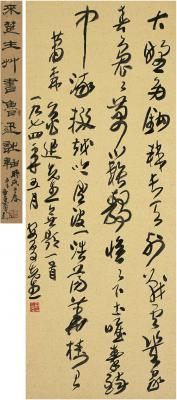 來楚生艸書魯迅詩軸
大野多鉤棘長天列戰雲幾家
春裊裊萬籟靜愔愔下土唯秦醉
中流輟越吟風波一浩蕩花樹已
蕭森 魯迅先生無題一首
一九七四年五月